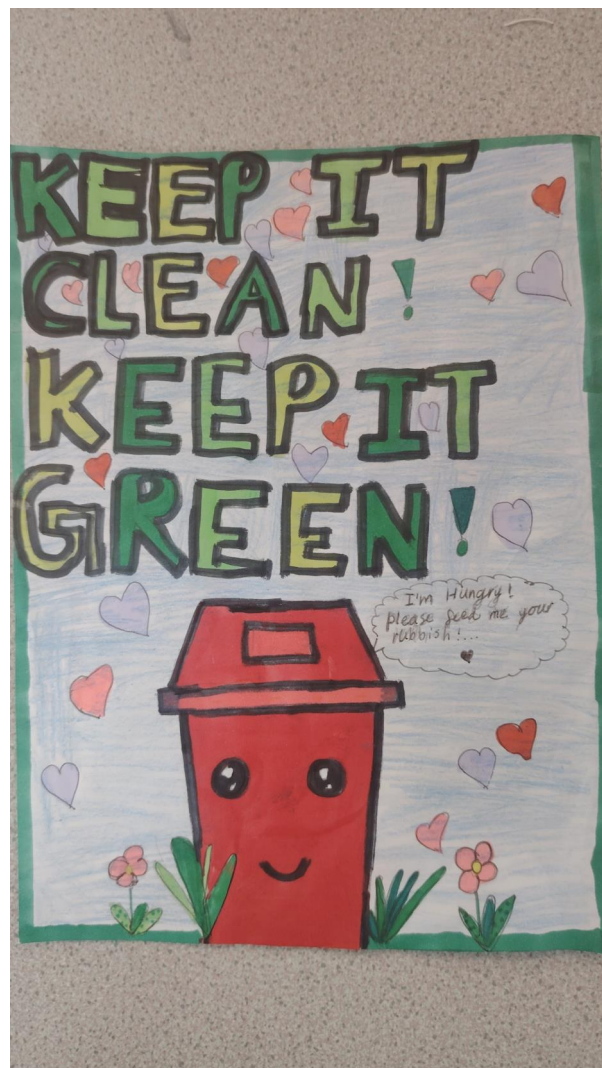 KEEP IT
CLEAN!
KEEP IT
GREEN!
I'm Hungry!
please feed me your
rubbish!...